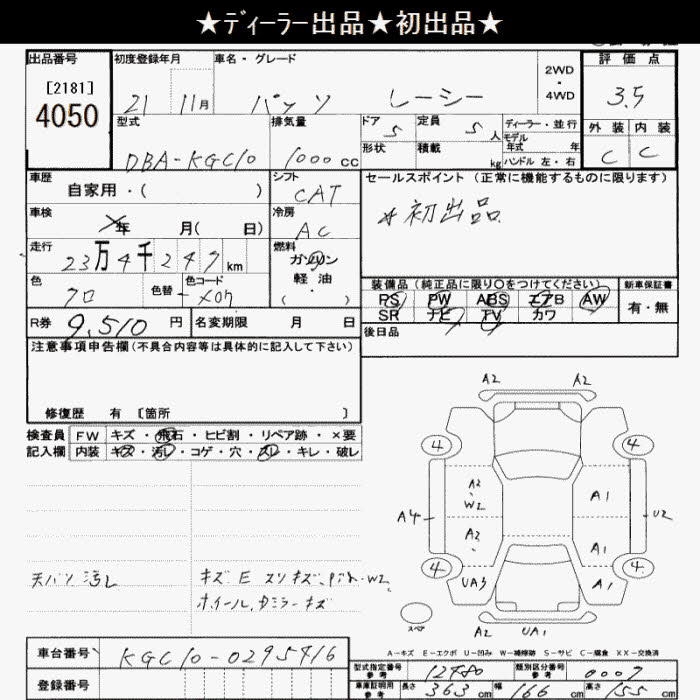 ★ディーラー出品★初出品★
出品番号 初度登録年月 車名・グレード 2WD ・ 4WD 評価点
[2181] 4050 21 11月 パッソ レーシー 3.5
型式 排気量 ドア 5 定員 5人 ディーラー・並行 外装 内装
DBA-KGC10 1000cc 形状 積載 kg モデル年式 年 ハンドル 左・右 C C
車歴 自家用・( ) シフト CAT セールスポイント (正常に機能するものに限ります)
車検 年 月( 日) 冷房 AC ☆初出品
走行 23万4千247km 燃料 ガソリン 軽油 ・( )
色 クロ 色替 色コード X07 装備品 (純正品に限り○をつけてください) 新車保証書
PS PW ABS エアB AW 有・無
SR ナビ TV カワ
R券 9,510円 名変期限 月 日 後日品
注意事項申告欄(不具合内容等は具体的に記入して下さい)
修復歴 有 [箇所 ]
検査員 FW キズ・飛石・ヒビ割・リペア跡・×要
記入欄 内装 キズ・汚レ・コゲ・穴・スレ・キレ・破レ
A2 A2
4 4
A2 W2 A1
A4 U2
A2 A1
4 4
UA3 A1
スペア A2 UA1
天バリ汚レ キズ E スリキズ、 W2
ホイール、ミラーキズ
A-キズ E-エクボ U-凹み W-補修跡 S-サビ C-腐食 XX-交換済
車台番号 KGC10-0295416
型式指定番号 参考 12480 類別区分番号 参考 0007
登録番号 車庫証明用 参考 長さ 363cm 幅 166cm 高さ 155cm